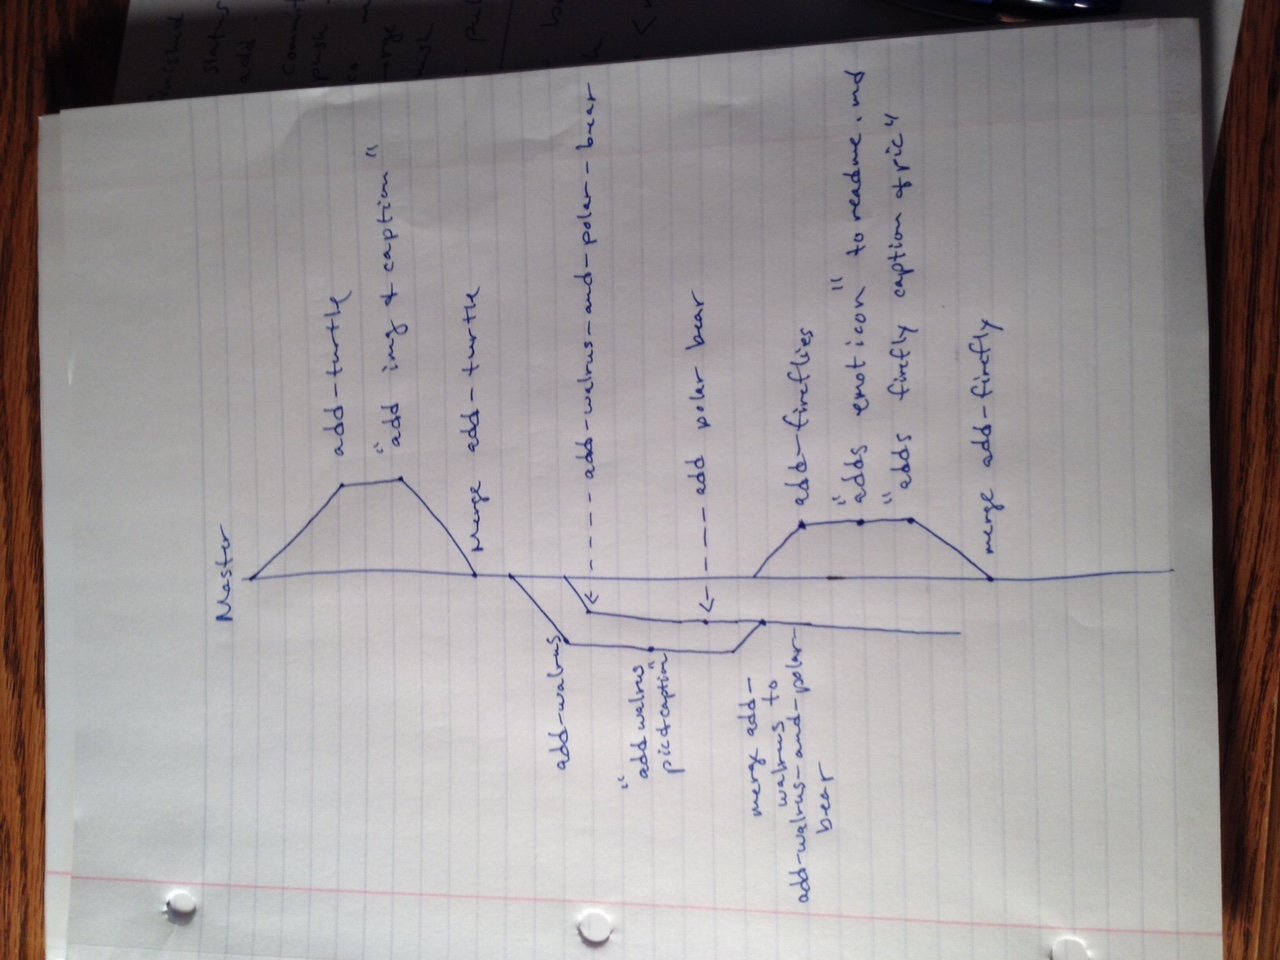 Master
add-turtle
"add img & caption"
Merge add-turtle
add-walrus
add-walrus-and-polar-bear
"add walrus
pic & caption"
add polar bear
merge add-
walrus to
add-walrus-and-polar-
bear
add-fireflies
"adds emoticon" to readme.md
"adds firefly caption & pic"
merge add-firefly
inished
status
add .
commit
push
co
merge
push